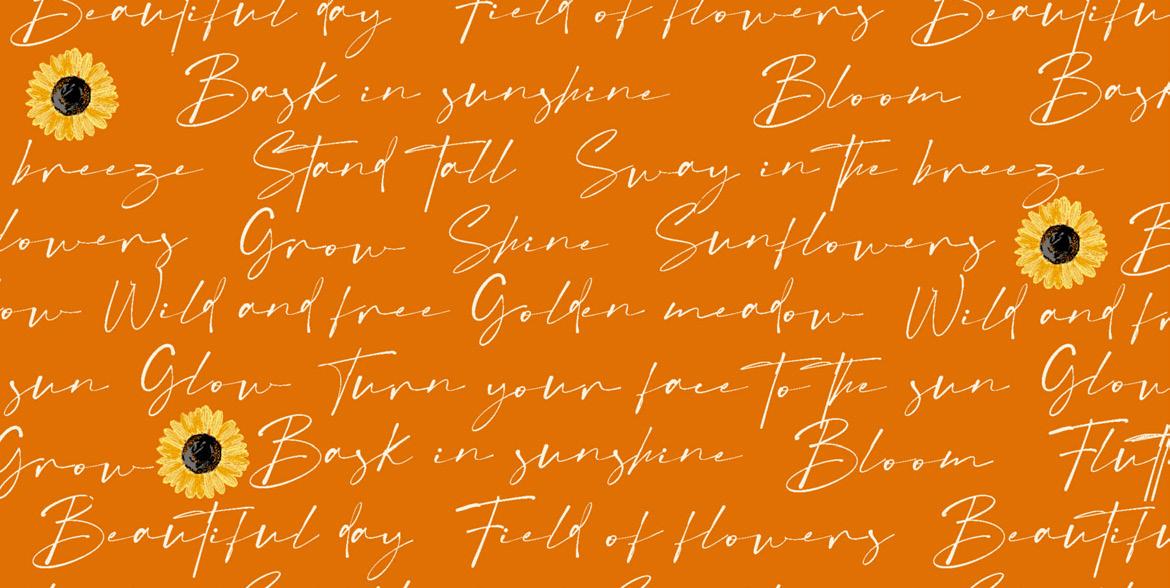 Beautiful day Field of flowers Beautifu
Bask in sunshine Bloom Bask
breeze Stand Tall Sway in the breeze
lowers Grow Shine Sunflowers B
ow Wild and free Golden meadow Wild and fr
sun Glow Turn your face to the sun Glow
Grow Bask in sunshine Bloom Flutt
Beautiful day Field of flowers Beautifu